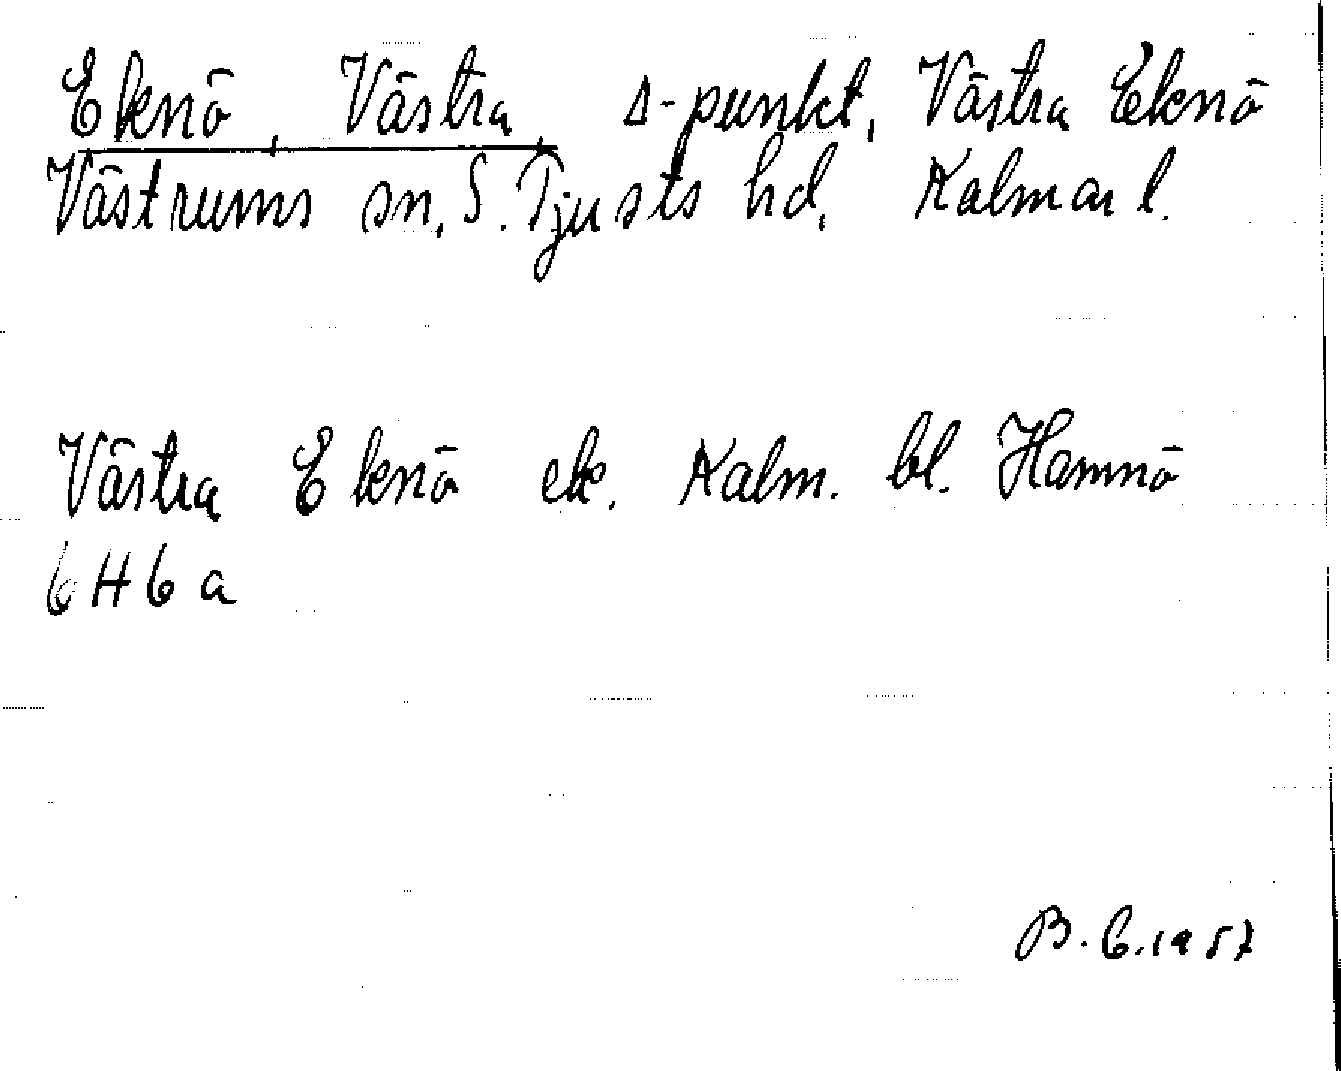 Eknö, Västra, Δ-punkt, Västra Eknö
Västrums sn, S. Tjusts hd, Kalmar l.
Västra Eknö ek. Kalm. bl. Hamnö
6H6a
B. G. 1957